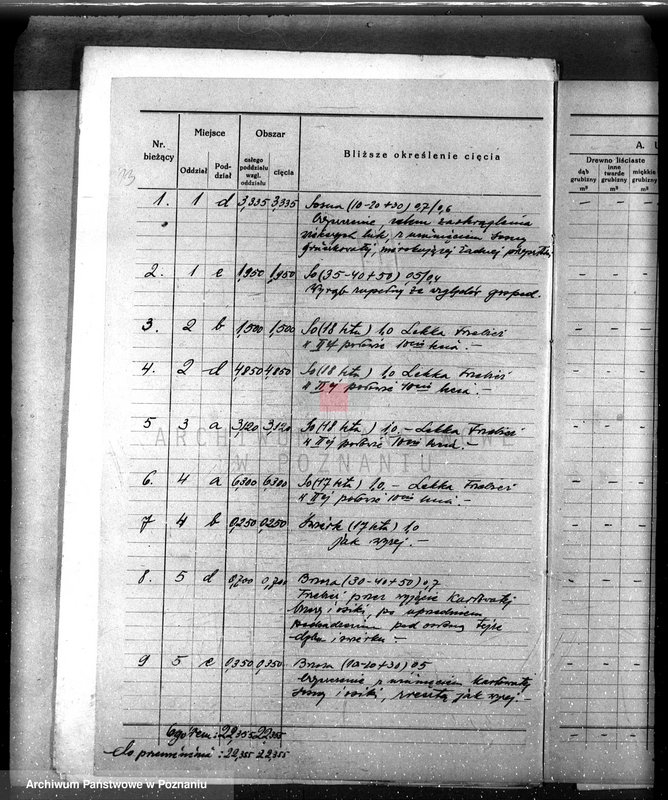 Nr. bieżący
Miejsce
Oddział
Poddział
Obszar
całego poddziału wzgl. oddziału
cięcia
Bliższe określenie cięcia
A. U
Drewno liściaste
dąb grubizny m³
inne twarde grubizny m³
miękkie grubizny m³
1. 1 d 3,335 3,335 Sosna (10-20+30) 0,7/0,6
2. 1 c 1,950 1,950 So (35-40+50) 0,5/0,4
Wyrąb zupełny ze względów gospod.
3. 2 b 1,500 1,500 So (18 ltn.) 1,0 Lekka trzebież
w II ej połowie 10 cio lecia. —
4. 2 d 4,850 4,850 So (18 ltn.) 1,0 Lekka trzebież
w II ej połowie 10 cio lecia. —
5 3 a 3,120 3,120 So (18 ltn.) 1,0. — Lekka trzebież
w II ej połowie 10 cio lecia.
6. 4 a 6,300 6,300 So (17 ltn.) 1,0. — Lekka trzebież
w II ej połowie 10 cio lecia. —
7 4 b 0,250 0,250 Świerk (17 ltn.) 1,0
jak wyżej. —
8. 5 d 0,700 0,700 Brzoza (30-40+50) 0,7
Trzebież przez wyjęcie karłowatej
brzozy i osiki, po uprzedniem
pod osłoną tejże
dębu i świerku —
9 5 c 0,350 0,350 Brzoza (10-20+30) 0,5
Czyszczenie z usunięciem karłowatej
sosny i osiki, zresztą jak wyżej. —
22,355 22,355
Do przeniesienia : 22,355 22,355
ARCHIWUM PAŃSTWOWE
W POZNANIU
Archiwum Państwowe w Poznaniu